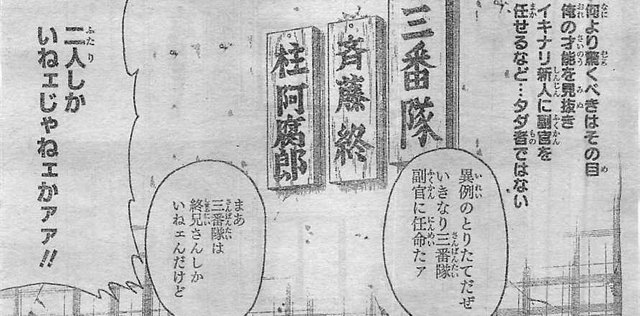 何より驚くべきはその目
俺の才能を見抜き
イキナリ新人に副官を
任せるなど…タダ者ではない
三番隊
斉藤終
桂阿腐郎
異例のとりたてだぜ
いきなり三番隊
副官に任命たァ
まあ
三番隊は
終兄さんしか
いねェんだけど
二人しか
いねェじゃねェかァァ!!